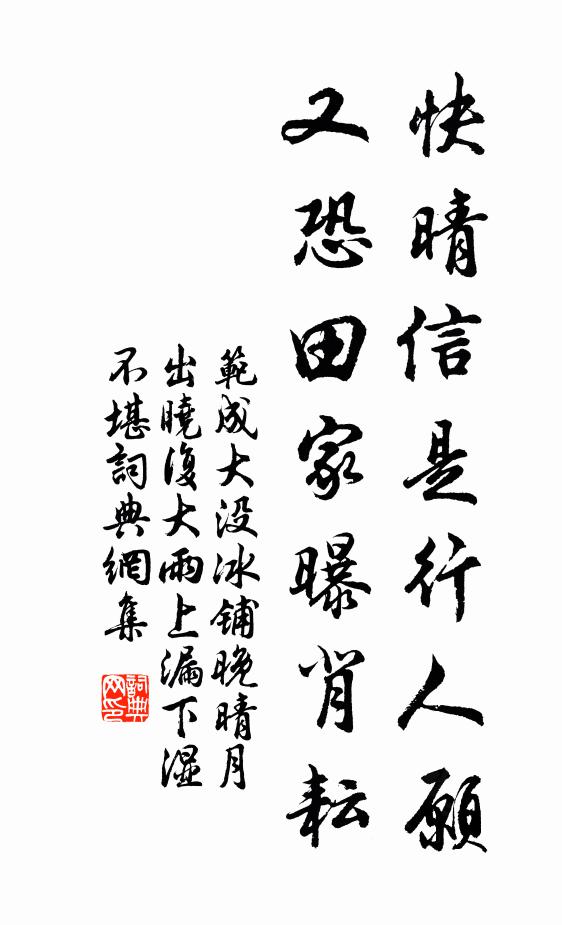 快晴信是行人願
又恐田家曝背耘
範成大没冰鋪晚晴月
出曉復大雨上漏下濕
不堪詞典網集
詞典網印